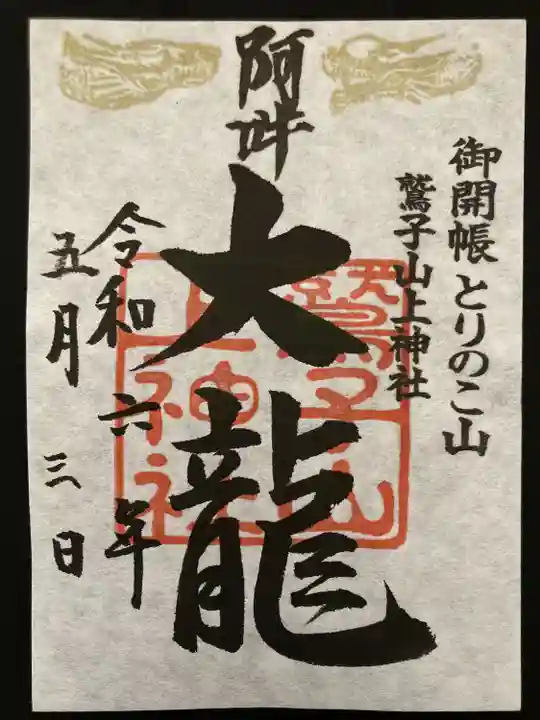 御開帳 とりのこ山
鷲子山上神社
阿吽
大龍
鷲子山
上神社
令和六年
五月三日